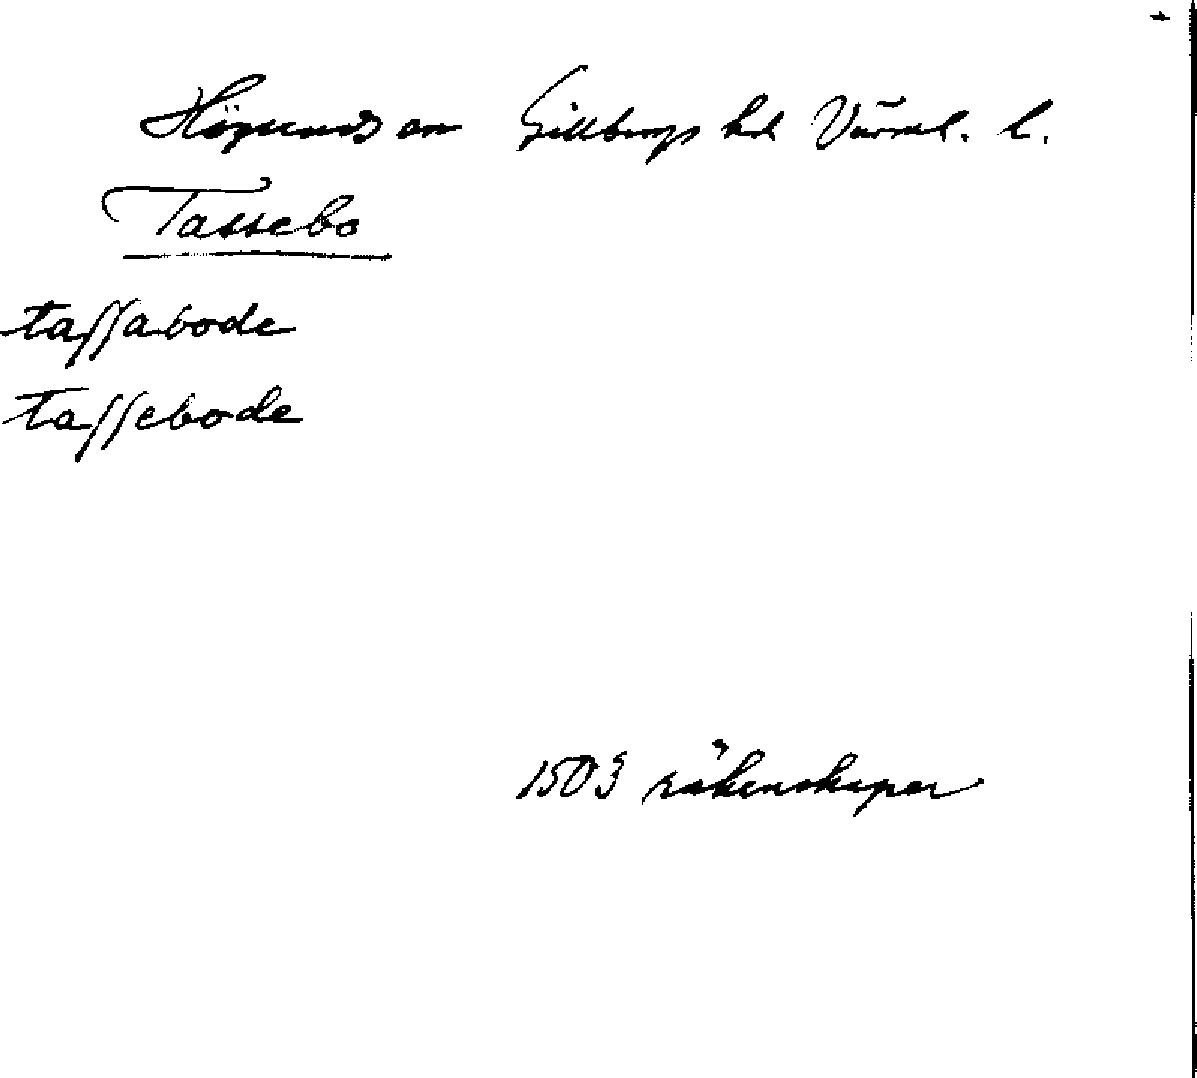 Högerud sn Gillbergs hd Värml. l.
Tassebo
tassabode
tassebode
1503 räkenskaper